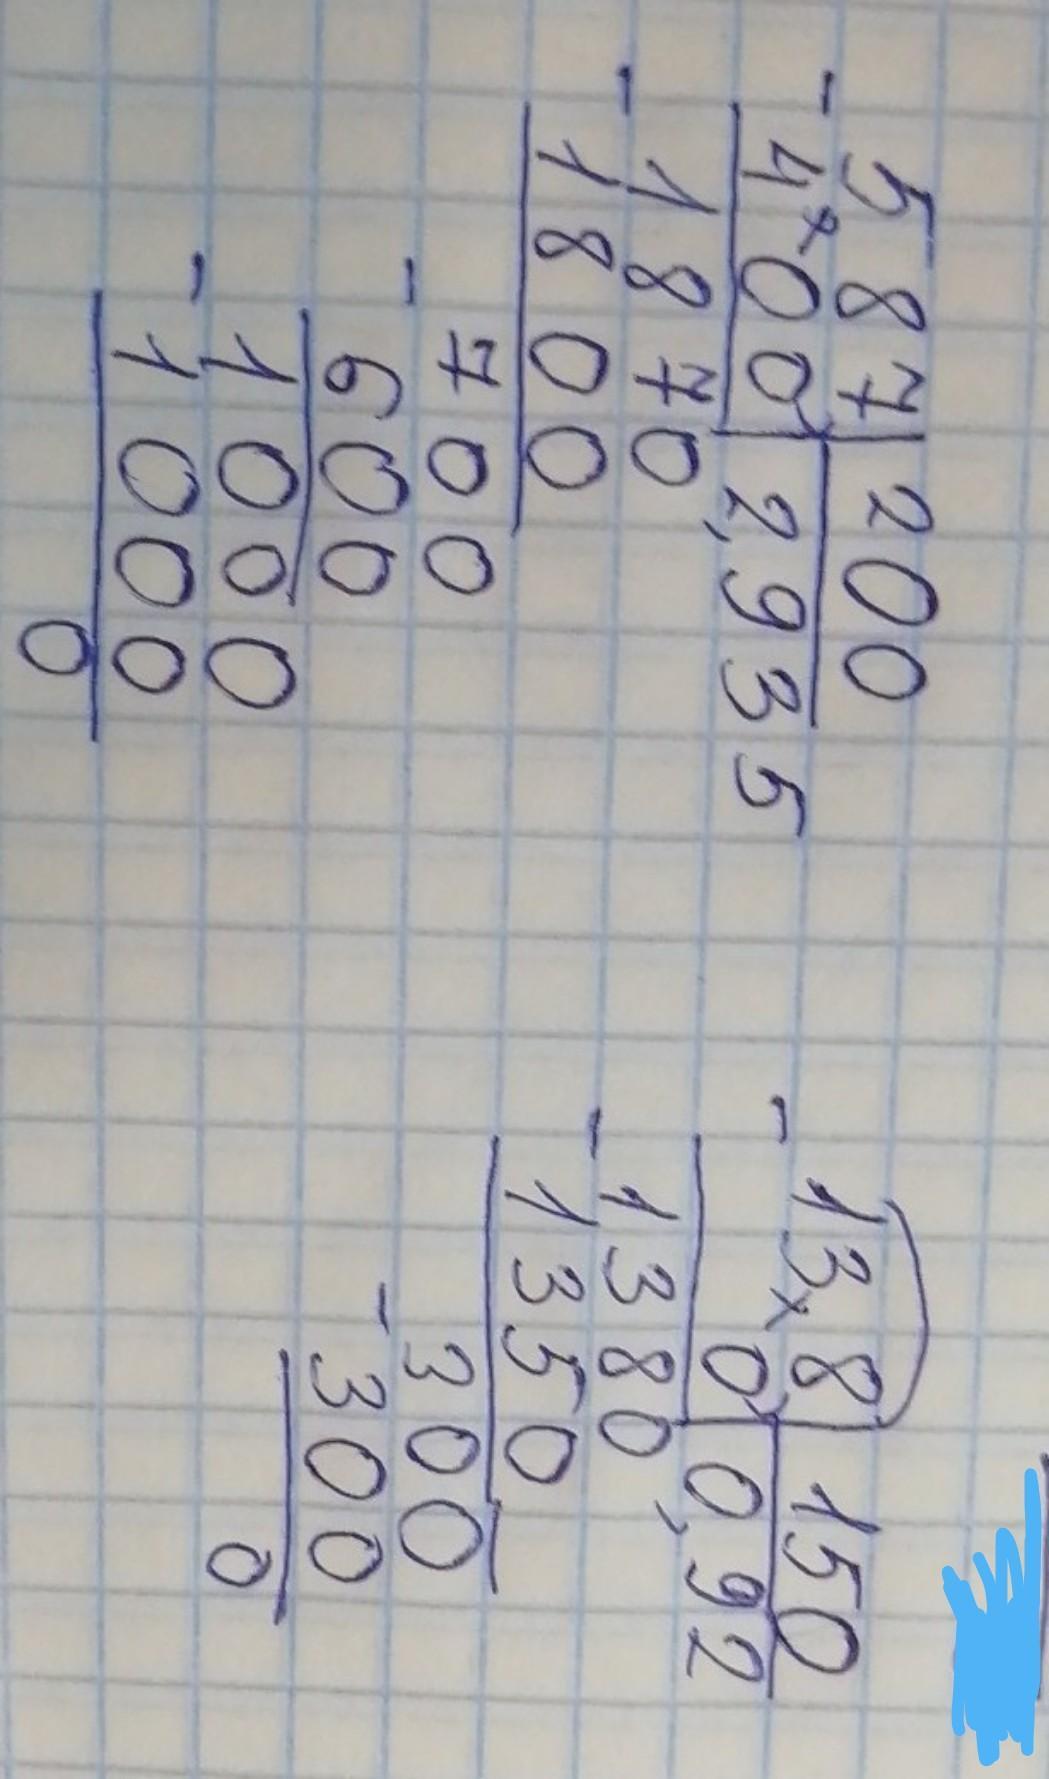 587 | 200
- 400 | 2,935
- 1870
1800
- 700
600
- 1000
1000
0
138 | 150
- 0 | 0,92
- 1380
1350
- 300
300
0